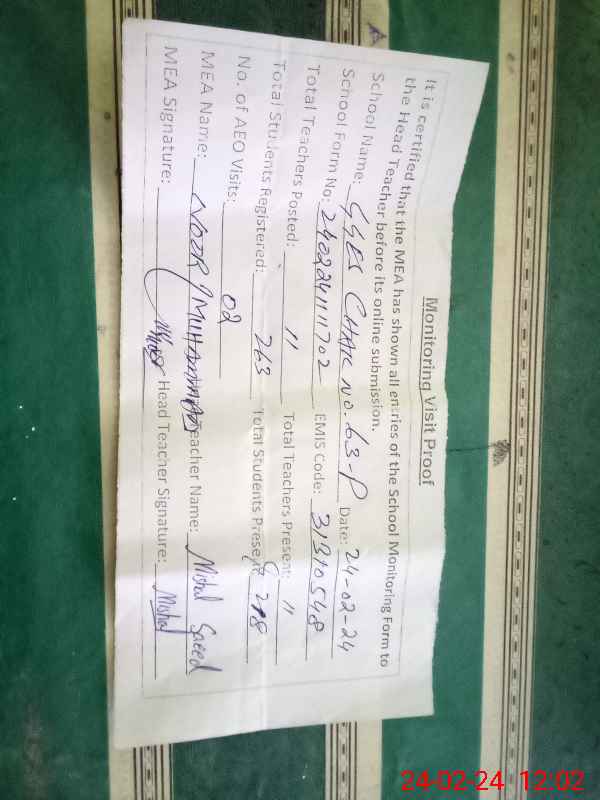 Monitoring Visit Proof
It is certified that the MEA has shown all entries of the School Monitoring Form to
the Head Teacher before its online submission.
School Name: GGES CHAK NO. 63-P Date: 24-02-24
School Form No: 2402241111702 EMIS Code: 31310548
Total Teachers Posted: 11 Total Teachers Present: 11
Total Students Registered: 263 Total Students Present: 218
No. of AEO Visits: 02
MEA Name: NOOR MUHAMMAD Teacher Name: Mishal Saeed
MEA Signature: Head Teacher Signature: Mishal
24-02-24 12:02